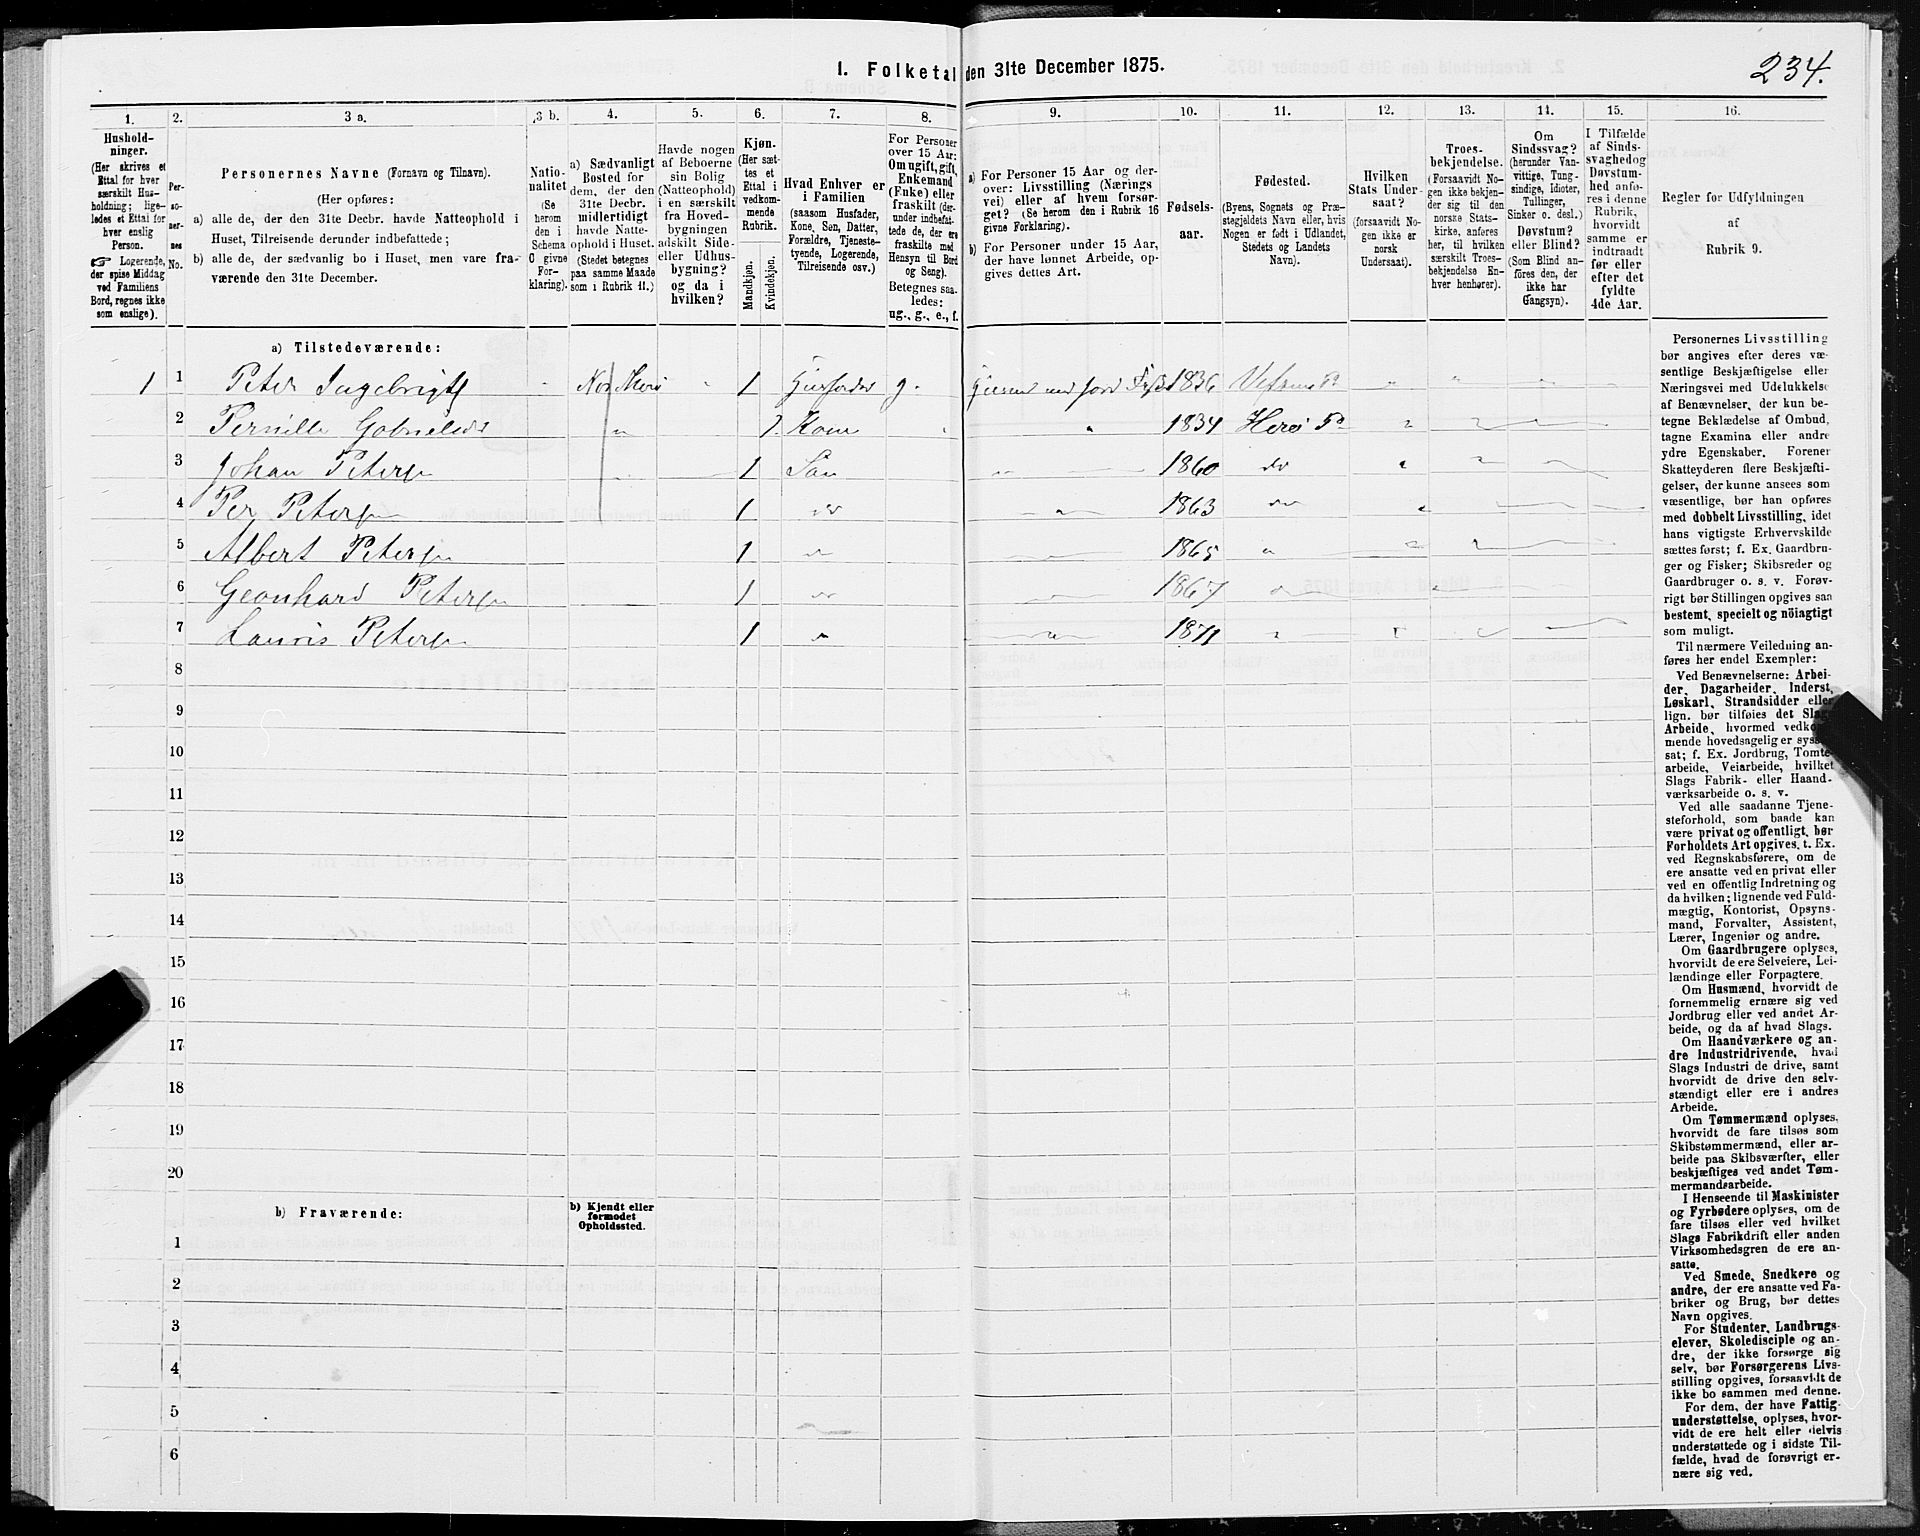 234.
1. Folketal den 31te December 1875.
1. 2. 3 a. 3 b. 4. 5. 6. 7. 8. 9. 10. 11. 12. 13. 14. 15. 16.
Hushold-
ninger.
(Her skrives et
Ettal for hver
særskilt Hus-
holdning; lige-
ledes et Ettal for
hver enslig
Person.
☞ Logerende,
der spise Middag
ved Familiens
Bord, regnes ikke
som enslige).
Per-
so-
ner-
nes
No.
Personernes Navne (Fornavn og Tilnavn).
(Her opføres:
a) alle de, der den 31te Decbr. havde Natteophold i
Huset, Tilreisende derunder indbefattede;
b) alle de, der sædvanlig bo i Huset, men vare fra-
værende den 31te December.
Natio-
nalitet
(Se
herom
den i
Schema
C givne
For-
klaring).
a) Sædvanligt
Bosted for
dem, der den
31te Decbr.
midlertidigt
havde Natte-
ophold i Huset.
(Stedet betegnes
paa samme Maade
som i Rubrik 11.)
Havde nogen
af Beboerne
sin Bolig
(Natteophold)
i en særskilt
fra Hoved-
bygningen
adskilt Side-
eller Udhus-
bygning?
og da i
hvilken?
Kjøn.
(Her sæt-
tes et
Ettal i
vedkom-
mende
Rubrik.
Mandkjøn.
Kvindekjøn.
Hvad Enhver er
i Familien
(saasom Husfader,
Kone, Søn, Datter,
Forældre, Tjeneste-
tyende, Logerende,
Tilreisende osv.)
For Personer
over 15 Aar:
Om ugift, gift,
Enkemand
(Enke) eller
fraskilt (der-
under indbefat-
tede de, der ere
fraskilte med
Hensyn til Bord
og Seng).
Betegnes saa-
ledes:
ug., g., e., f.
a) For Personer 15 Aar og der-
over: Livsstilling (Nærings
vei) eller af hvem forsør-
get? (Se herom den i Rubrik 16
givne Forklaring).
b) For Personer under 15 Aar,
der have lønnet Arbeide, op-
gives dettes Art.
Fødsels-
aar.
Fødested.
(Byens, Sognets og Præ-
stegjeldets Navn eller, hvis
Nogen er født i Udlandet,
Stedets og Landets
Navn).
Hvilken
Stats Under-
saat?
(forsaavidt No-
gen ikke er
norsk
Undersaat).
Troes-
bekjendelse.
(Forsaavidt No-
gen ikke bekjen-
der sig til den
norske Stats-
kirke, anføres
her, til hvilken
særskilt Troes-
bekjendelse En-
hver henhører).
Om
Sindssvag?
(herunder Van-
vittige, Tung-
sindige, Idioter,
Tullinger,
Sinker o. desl.)
Døvstum?
eller Blind?
(Som Blind an-
føres den, der
ikke har
Gangsyn).
I Tilfælde
af Sinds-
svaghed og
Døvstum-
hed anfø-
res i denne
Rubrik,
hvorvidt
samme er
indtraadt
før eller
efter det
fyldte
4de Aar.
Regler for Udfyldningen
af
Rubrik 9.
a) Tilstedeværende:
1 1 Peter Ingebrigts 1 g. 1836
2 Pernille Gabrielsd 1 Kone 1834 Herø
3 Johan Peters 1 Søn 1860 do
4 Per Peters 1 do 1863 do
5 Albert Peters 1 1865
6 Geonhard Peters 1 1867
7 Lauris Peters 1 1871
8
9
10
11
12
13
14
15
16
17
18
19
20
b) Fraværende:
b) Kjendt eller
formodet
Opholdssted.
1
2
3
4
5
6
Personernes Livsstilling
bør angives efter deres væ-
sentlige Beskjæftigelse eller
Næringsvei med Udelukkelse
af Benævnelser, der kun be-
tegne Beklædelse af Ombud,
tagne Examina eller andre
ydre Egenskaber. Forener
Skatteyderen flere Beskjæfti-
gelser, der kunne ansees som
væsentlige, bør han opføres
med dobbelt Livsstilling, idet
hans vigtigste Erhvervskilde
sættes først; f. Ex. Gaardbru-
ger og Fisker; Skibsreder og
Gaardbruger o. s. v. Forøv-
rigt bør Stillingen opgives saa
bestemt, specielt og nöiagtigt
som muligt.
Til nærmere Veiledning an-
føres her endel Exempler:
Ved Benævnelserne: Arbei-
der, Dagarbeider, Inderst,
Løskarl, Strandsidder eller
lign. bør tilføies det Slags
Arbeide, hvormed vedkom-
mende hovedsagelig er syssel-
sat; f. Ex. Jordbrug, Tomte-
arbeide, Veiarbeide, hvilket
Slags Fabrik- eller Haand-
værksarbeide o. s. v.
Ved alle saadanne Tjene-
steforhold, som baade kan
være privat og offentligt, bør
Forholdets Art opgives, t. Ex.
ved Regnskabsførere, om de
ere ansatte ved en privat eller
ved en offentlig Indretning og
da hvilken; lignende ved Fuld-
mægtig, Kontorist, Opsyns-
mand, Forvalter, Assistent,
Lærer, Ingeniør og andre.
Om Gaardbrugere oplyses,
hvorvidt de ere Selveiere, Lei-
lændinge eller Forpagtere.
Om Husmænd, hvorvidt de
fornemmelig ernære sig ved
Jordbrug eller ved andet Ar-
beide, og da af hvad Slags.
Om Haandværkere og an-
dre Industridrivende, hvad
Slags Industri de drive, samt
hvorvidt de drive den selv-
stændigt eller ere i andres
Arbeide.
Om Tømmermænd oplyses,
hvorvidt de fare tilsøs som
Skibstømmermænd, eller ar-
beide paa Skibsværfter, eller
beskjæftiges ved andet Tøm-
mermandsarbeide.
I Henseende til Maskinister
og Fyrbødere oplyses, om de
fare tilsøs eller ved hvilket
Slags Fabrikdrift eller anden
Virksomhedsgren de ere an-
satte.
Ved Smede, Snedkere og
andre, der ere ansatte ved Fa-
briker og Brug, bør dettes
Navn opgives.
For Studenter, Landbrugs-
elever, Skoledisciple og an-
dre, der ikke forsørge sig
selv, bør Forsørgerens Livs-
stilling opgives, forsaavidt de
ikke bo sammen med denne.
For dem, der have Fattig-
understøttelse, oplyses, hvor-
vidt de ere helt eller delvis
understøttede og i sidste Til-
fælde, hvad de forøvrigt er-
nære sig ved.